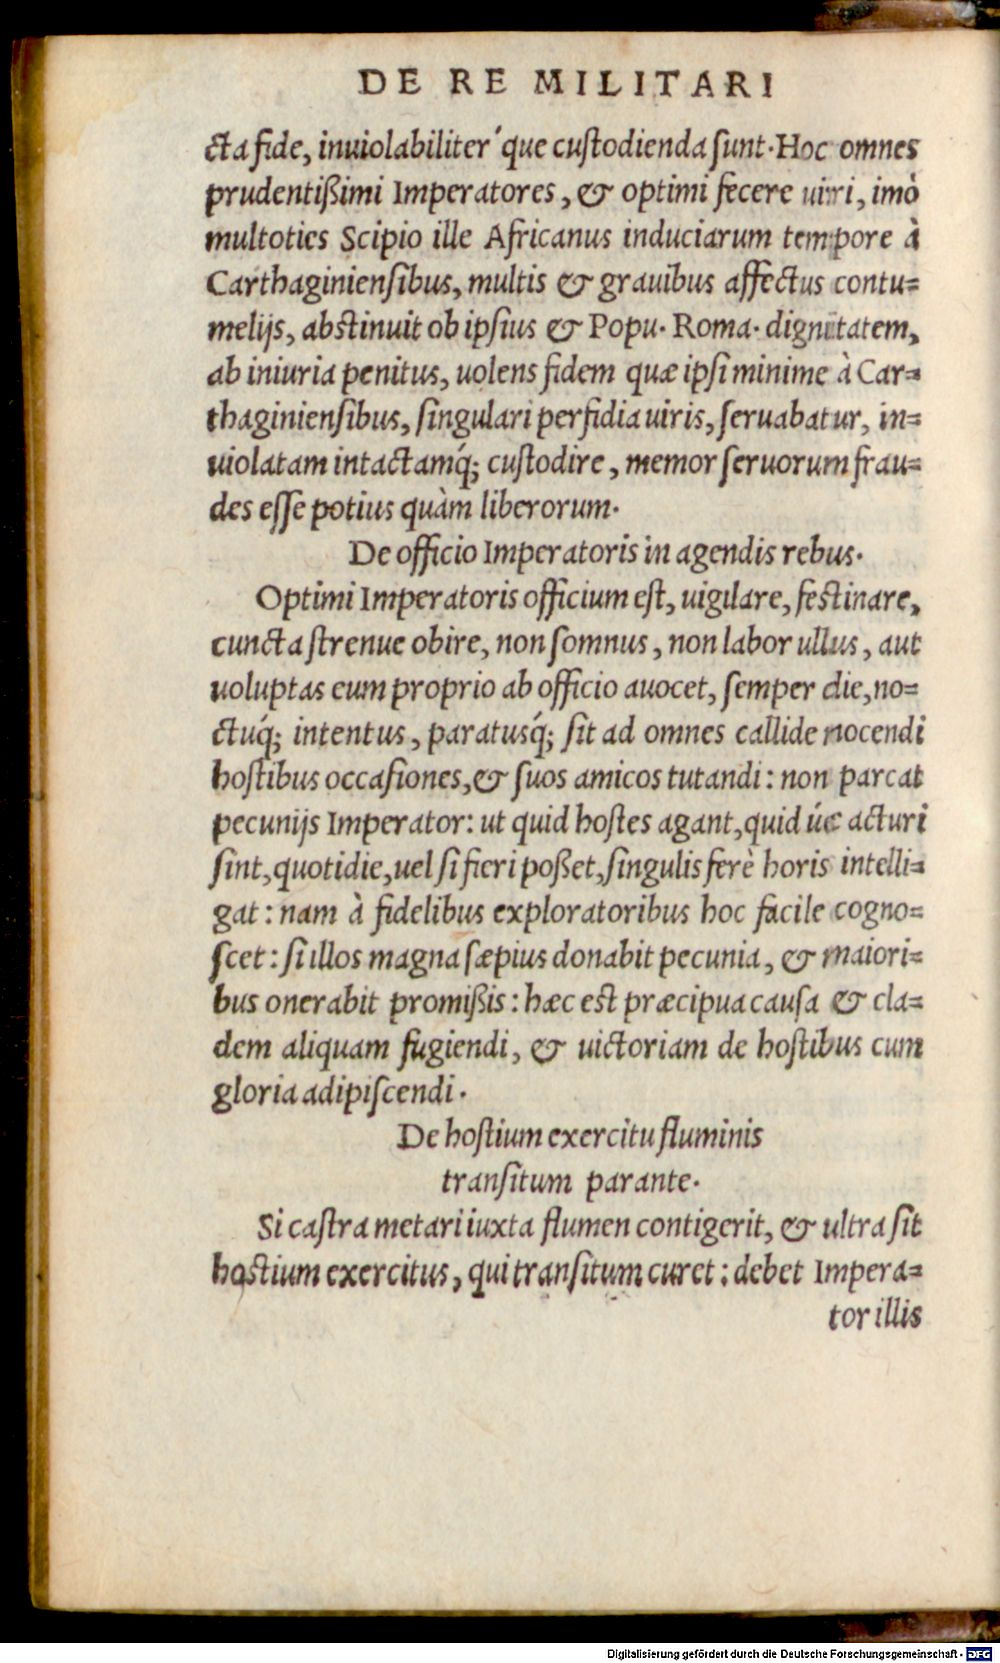 DE RE MILITARI
cta fide, inuiolabiliter´que custodienda sunt. Hoc omnes
prudentißimi Imperatores, & optimi fecere uiri, imò
multoties Scipio ille Africanus induciarum tempore à
Carthaginiensibus, multis & grauibus affectus contu=
melijs, abstinuit ob ipsius & Popu. Roma. dignitatem,
ab iniuria penitus, uolens fidem quæ ipsi minime à Car=
thaginiensibus, singulari perfidia uiris, seruabatur, in=
uiolatam intactamq́; custodire, memor seruorum frau=
des esse potius quàm liberorum.
De officio Imperatoris in agendis rebus.
Optimi Imperatoris officium est, uigilare, festinare,
cuncta strenue obire, non somnus, non labor ullus, aut
uoluptas eum proprio ab officio auocet, semper die, no=
ctuq́; intentus, paratusq́; sit ad omnes callide nocendi
hostibus occasiones, & suos amicos tutandi: non parcat
pecunijs Imperator: ut quid hostes agant, quid úe acturi
sint, quotidie, uel si fieri poßet, singulis ferè horis intelli=
gat: nam à fidelibus exploratoribus hoc facile cogno=
scet: si illos magna sæpius donabit pecunia, & maiori=
bus onerabit promißis: hæc est præcipua causa & cla=
dem aliquam fugiendi, & uictoriam de hostibus cum
gloria adipiscendi.
De hostium exercitu fluminis
transitum parante.
Si castra metari iuxta flumen contigerit, & ultra sit
hostium exercitus, qui transitum curet: debet Impera=
tor illis
Digitalisierung gefördert durch die Deutsche Forschungsgemeinschaft - DFG